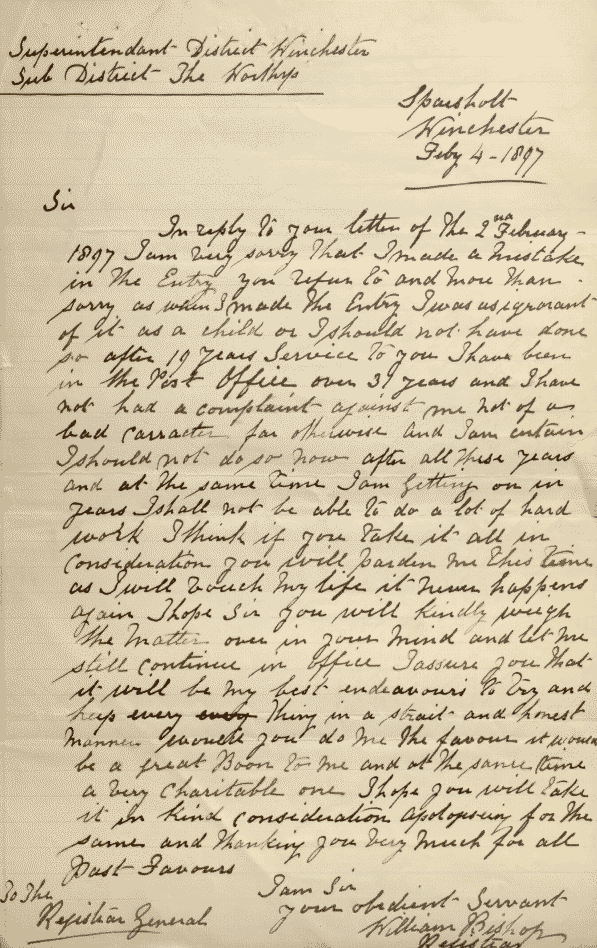 Superintendant District Winchester
Sub District The Worthys
Sparsholt
Winchester
Feby 4 - 1897
Sir
In reply to your letter of the 2nd February -
1897 I am very sorry that I made a mistake
in the Entry you refer to and more than
sorry as when I made the Entry I was as ignorant
of it as a child or I should not have done
so after 19 years Service to you I have been
in the Post Office over 31 years and I have
not had a complaint against me not of a
bad carracter far otherwise and I am certain
I should not do so now after all these years
and at the same time I am getting on in
years I shall not be able to do a lot of hard
work I think if you take it all in
consideration you will parden me this time
as I will vouch my life it never happens
again I hope Sir you will kindly weigh
the matter over in your mind and let me
still continue in office I assure you that
it will be my best endeavours to try and
keep every every thing in a strait and honest
manner would you do me the favour it would
be a great Boon to me and at the same time
a very charitable one I hope you will take
it in kind consideration apologising for the
same and thanking you very much for all
past Favours
I am Sir
your obedient Servant
William Bishop
Registrar
To The
Registrar General